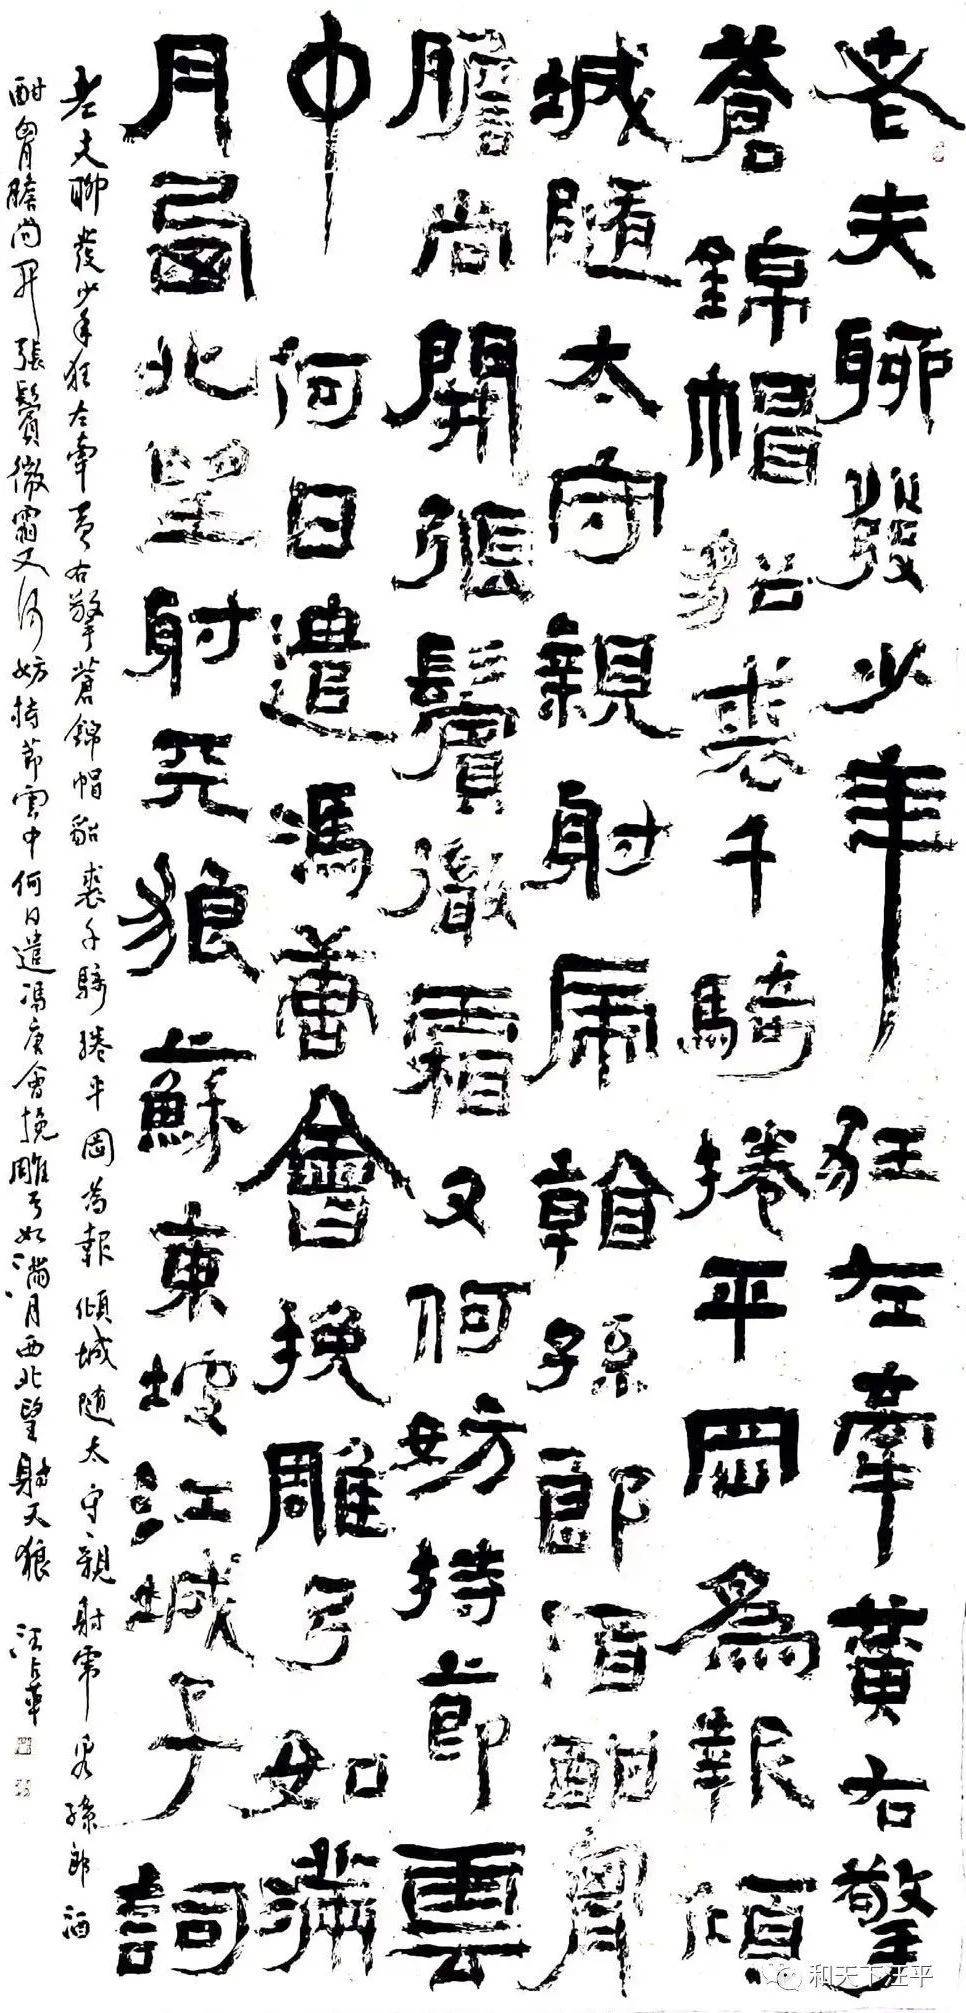 老夫聊發少年狂左牽黃右擎
蒼錦帽貂裘千騎捲平岡為報傾
城隨太守親射虎看孫郎酒酣胷
膽尚開張鬢微霜又何妨持節雲
中何日遣馮唐會挽雕弓如滿
月西北望射天狼蘇東坡江城子詞
老夫聊發少年狂左牽黃右擎蒼錦帽貂裘千騎捲平岡為報傾城隨太守親射虎看孫郎酒
酣胷膽尚開張鬢微霜又何妨持節雲中何日遣馮唐會挽雕弓如滿月西北望射天狼 汪
和天下汪平